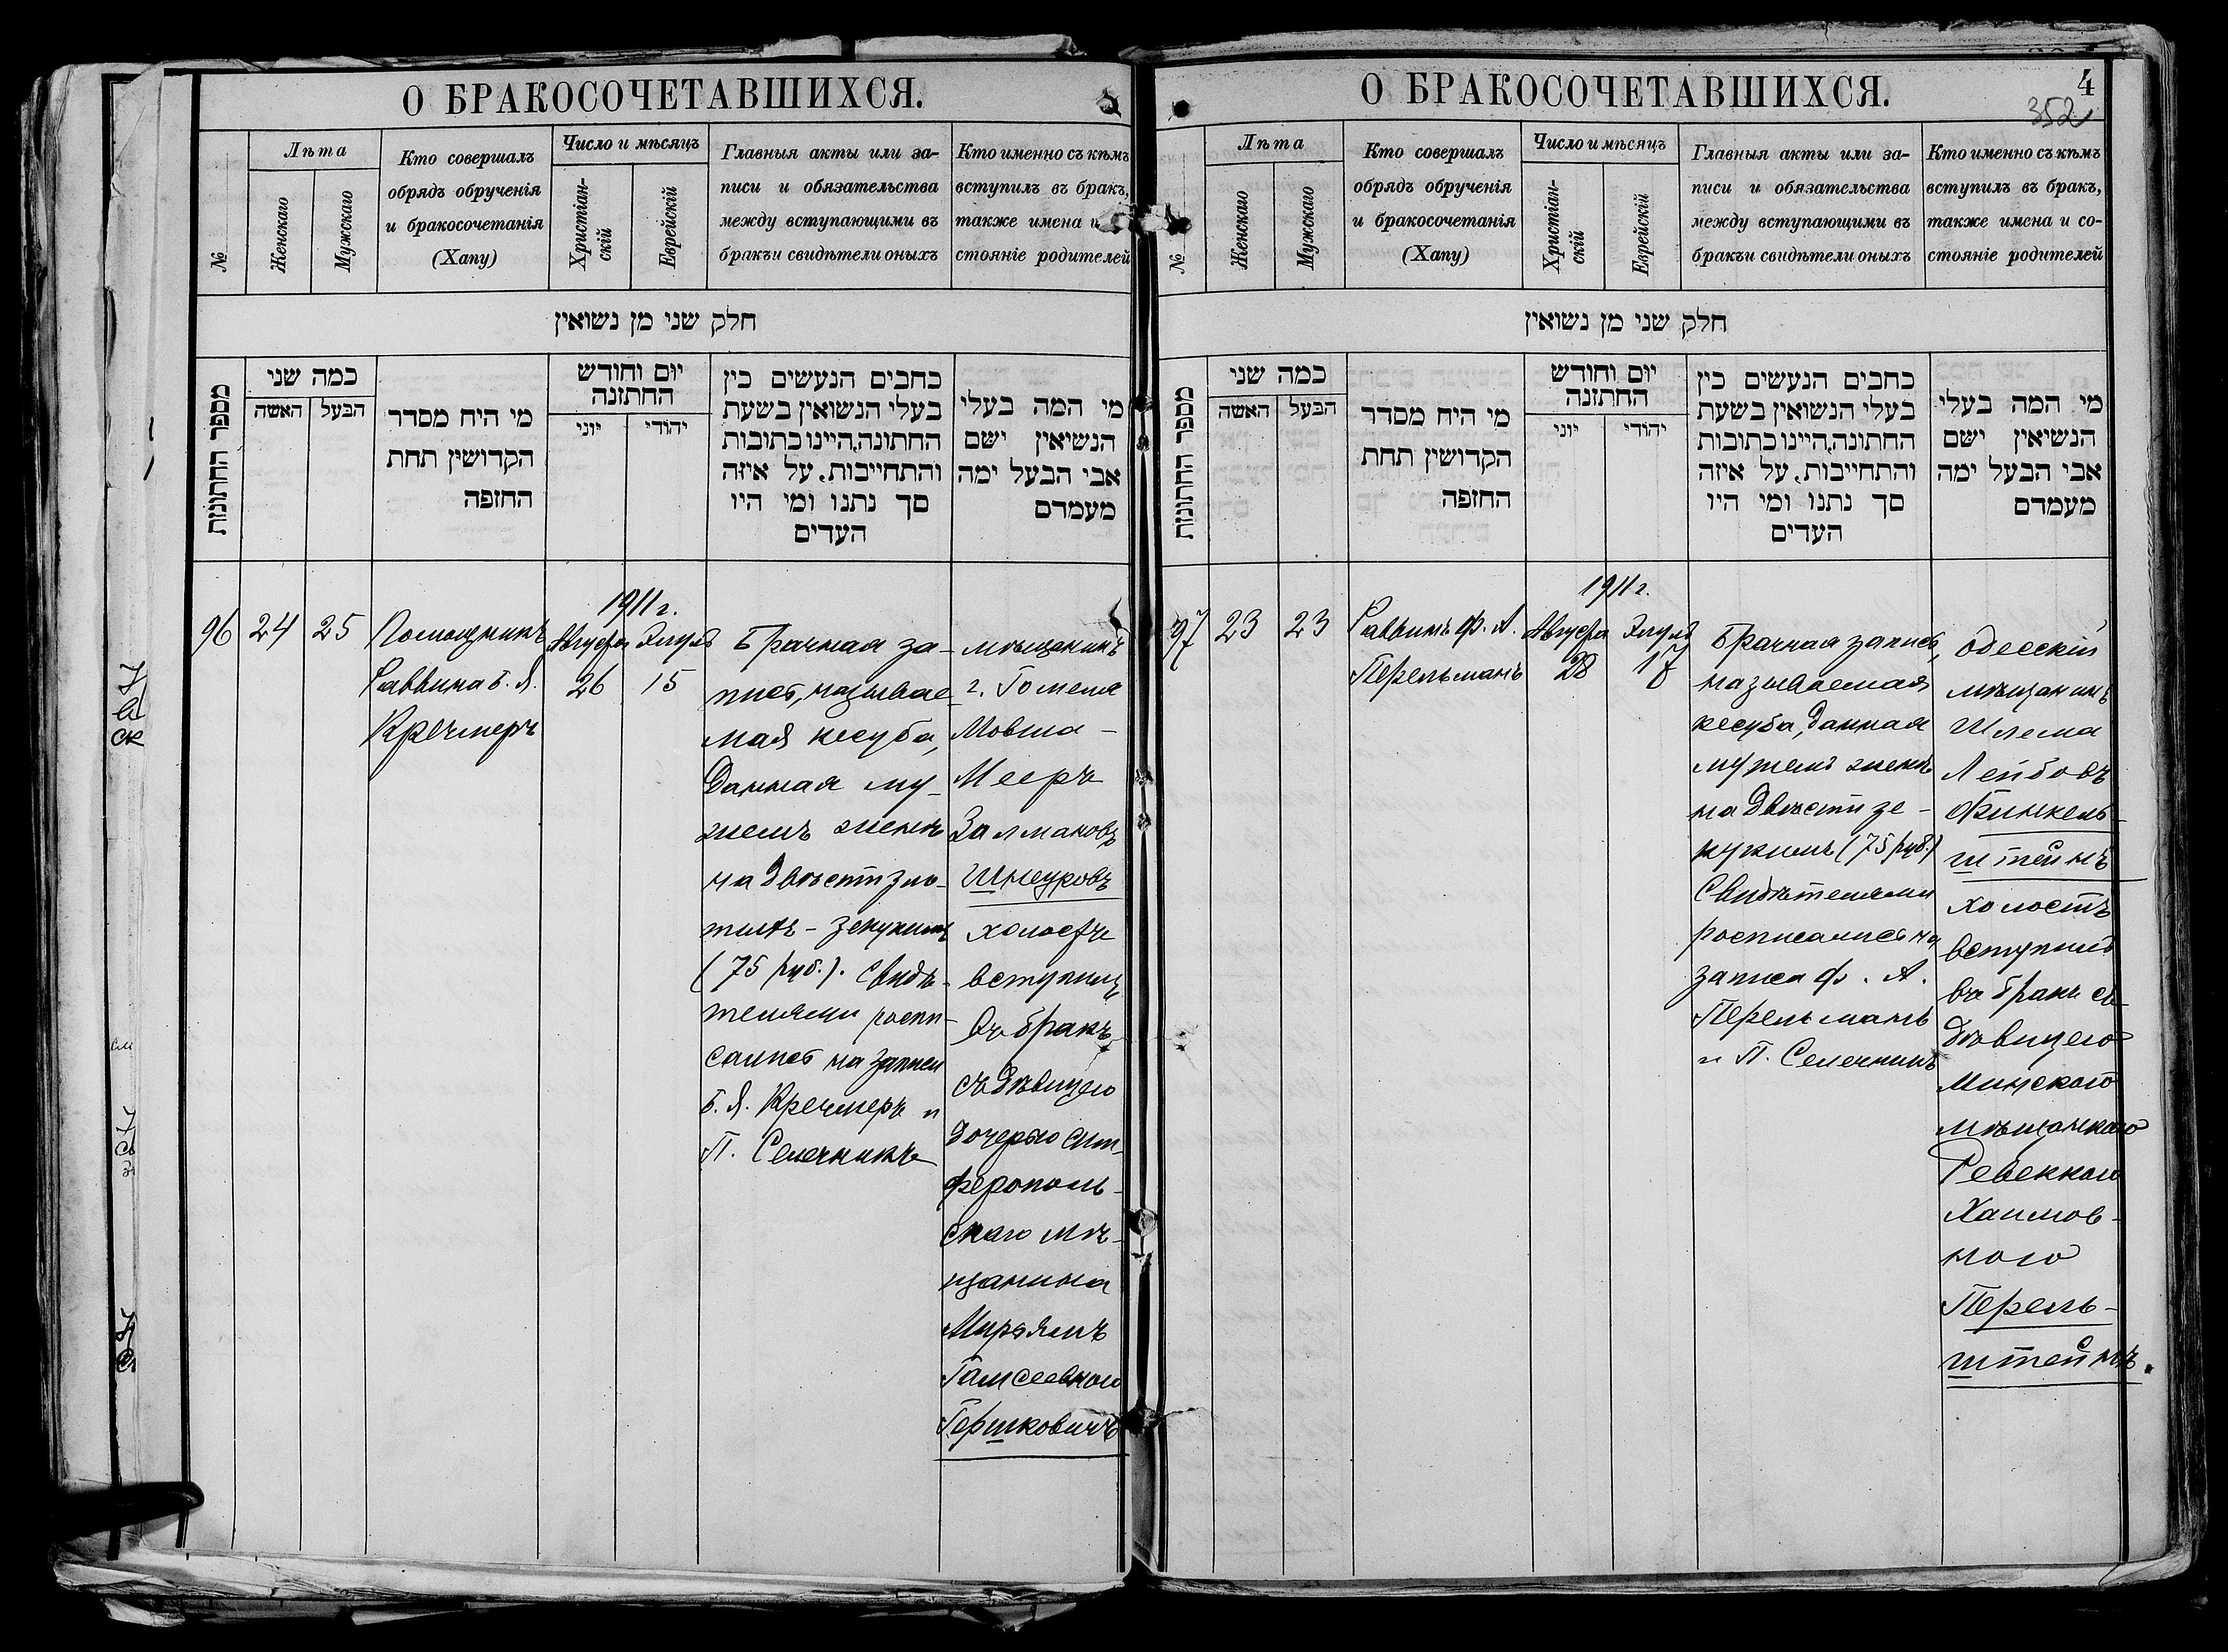 О БРАКОСОЧЕТАВШИХСЯ.
№
Лѣта
Женскаго
Мужскаго
Кто совершалъ
обрядъ обрученія
и бракосочетанія
(Хапу)
Число и мѣсяцъ
Христіан-
скій
Еврейскій
Главныя акты или за-
писи и обязательства
между вступающими въ
бракъ и свидѣтели оныхъ
Кто именно съ кѣмъ
вступилъ въ бракъ,
также имена и
стояніе родителей
חלק שני מן נשואין
מספר החתונות
כמה שני
האשה
הבעל
מי היח מסדר
הקדושין תחת
החופה
יום וחודש
החתזנה
יוני
יהודי
כחבים הנעשים כין
בעלי הנשואין בשעת
החתונה,היינו כתובות
והתחייבות. על איזה
סך נתנו ומי היו
העדים
מי המה בעלי
הנשיאין ישם
אבי הבעל ימה
מעמדם
96
24
25
Помощникъ
Раввина Б. Я.
Кречмеръ
1911 г.
Августа
26
Элулъ
15
Брачная за-
пись, называе-
мая кесуба,
данная му-
жемъ женѣ
на двѣсти зло-
тыхъ - зекукимъ
(75 руб.). Свидѣ-
телями роспи-
сались на записи
Б. Я. Кречмеръ и
П. Селечникъ
мѣщанинъ
г. Гомеля
Мовша -
Мееръ
Залмановъ
Шнеуровъ
холостъ
вступилъ
въ бракъ
съ дѣвицею
дочерью сим-
ферополь-
скаго мѣ-
щанина
Мирьямъ
Гамсеевною
Гершковичъ
О БРАКОСОЧЕТАВШИХСЯ.
4
352
№
Лѣта
Женскаго
Мужскаго
Кто совершалъ
обрядъ обрученія
и бракосочетанія
(Хапу)
Число и мѣсяцъ
Христіан-
скій
Еврейскій
Главныя акты или за-
писи и обязательства
между вступающими въ
бракъ и свидѣтели оныхъ
Кто именно съ кѣмъ
вступилъ въ бракъ,
также имена и со-
стояніе родителей
חלק שני מן נשואין
מספר החתונות
כמה שני
האשה
הבעל
מי היח מסדר
הקדושין תחת
החופה
יום וחודש
החתזנה
יוני
יהודי
כחבים הנעשים כין
בעלי הנשואין בשעת
החתונה,היינו כתובות
והתחייבות. על איזה
סך נתנו ומי היו
העדים
מי המה בעלי
הנשיאין ישם
אבי הבעל ימה
מעמדם
97
23
23
Раввинъ Ф. А.
Перельманъ
1911 г.
Августа
28
Элулъ
17
Брачная запись,
называемая
кесуба, данная
мужемъ женѣ
на двѣсти зе-
кукимъ (75 руб.)
Свидѣтелями
росписались на
записи Ф. А.
Перельманъ
и П. Селечникъ
Одесскій
мѣщанинъ
Шлема
Лейбовъ
Финкель-
штейнъ
холостъ
вступилъ
въ бракъ съ
дѣвицею
Минскою
мѣщанкою
Ревеккою
Хаимов-
ною
Перель-
штейнъ.